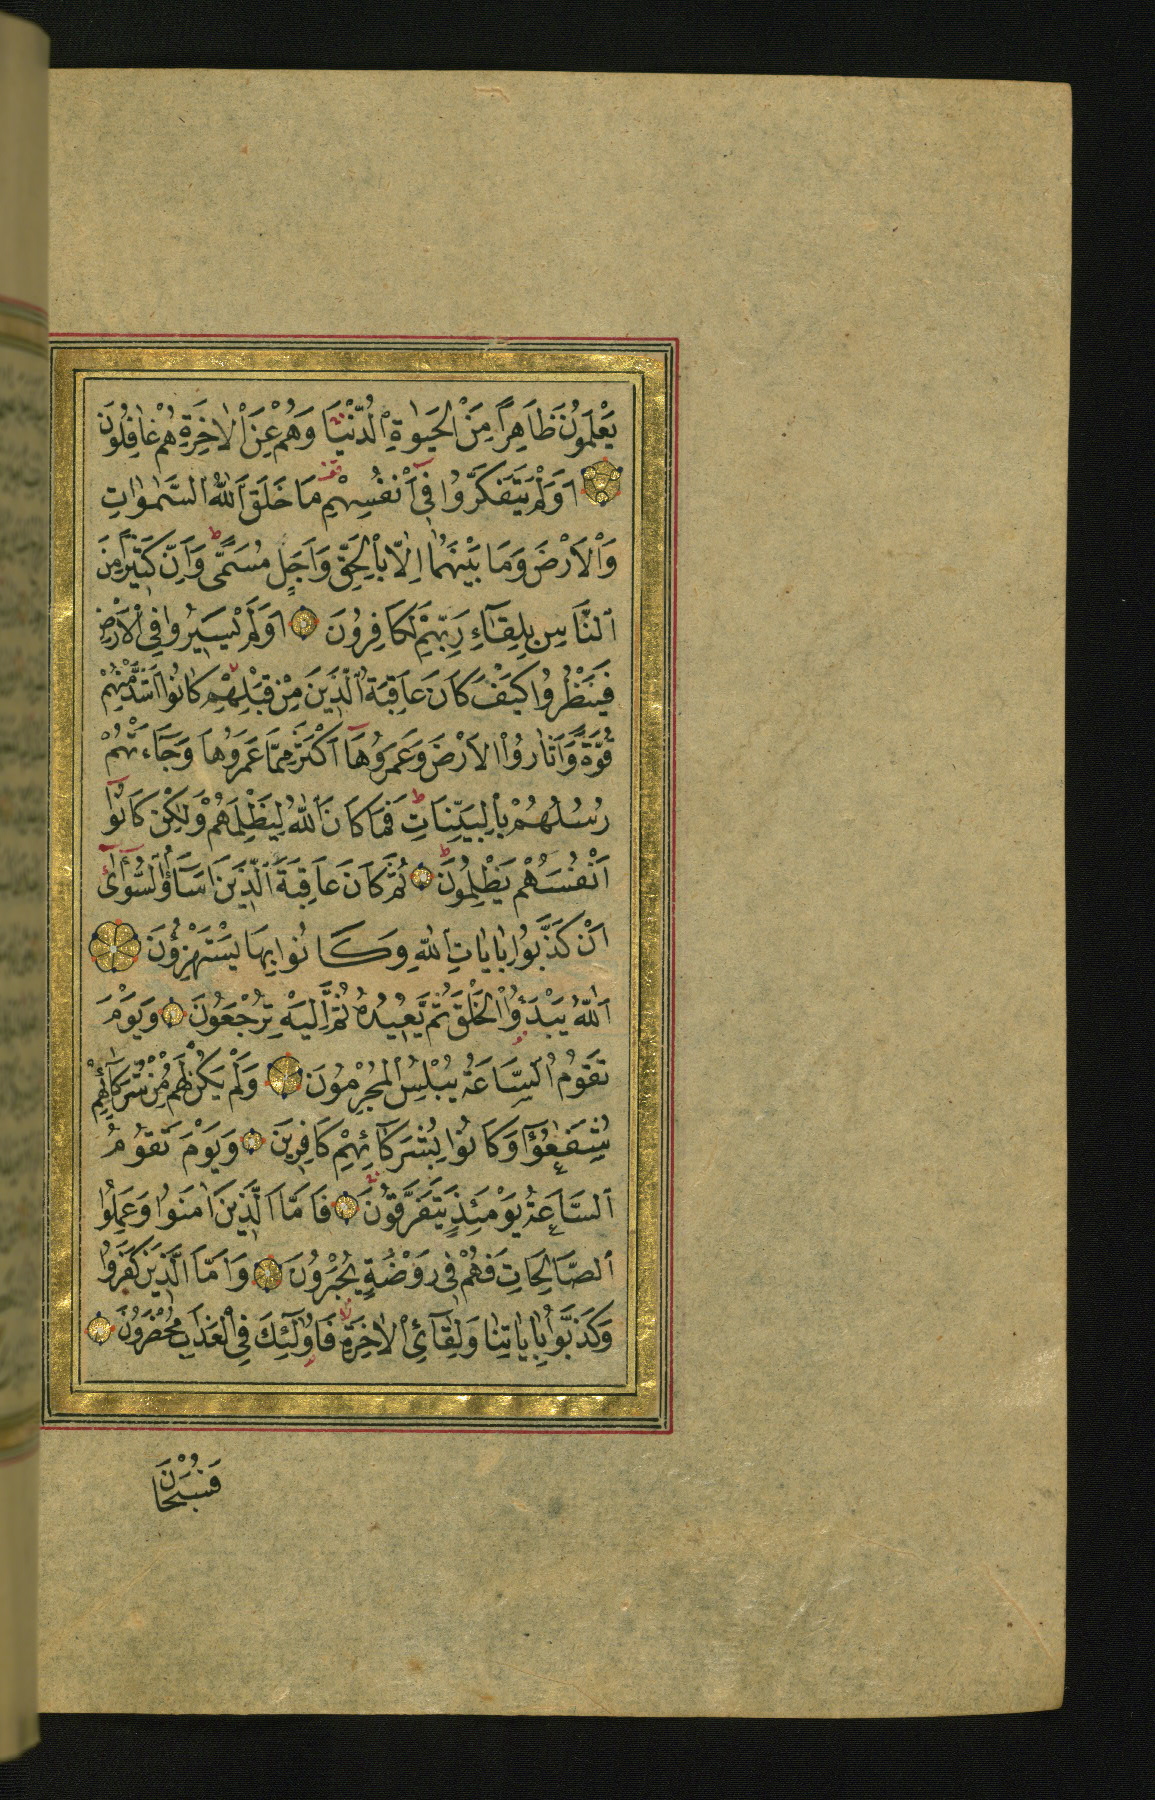 يَعْلَمُونَ ظَاهِرًا مِنَ الْحَيٰوةِ الدُّنْيَا وَهُمْ عَنِ الْاٰخِرَةِ هُمْ غَافِلُونَ
اَوَلَمْ يَتَفَكَّرُوا فِٓى اَنْفُسِهِمْ مَا خَلَقَ اللّٰهُ السَّمٰوَاتِ
وَالْاَرْضَ وَمَا بَيْنَهُمَٓا اِلَّا بِالْحَقِّ وَاَجَلٍ مُسَمًّى وَاِنَّ كَثِيرًا مِنَ
النَّاسِ بِلِقَٓاءِ رَبِّهِمْ لَكَافِرُونَ اَوَلَمْ يَسِيرُوا فِى الْاَرْضِ
فَيَنْظُرُوا كَيْفَ كَانَ عَاقِبَةُ الَّذِينَ مِنْ قَبْلِهِمْ كَانُٓوا اَشَدَّ مِنْهُمْ
قُوَّةً وَاَثَارُوا الْاَرْضَ وَعَمَرُوهَٓا اَكْثَرَ مِمَّا عَمَرُوهَا وَجَٓاءَتْهُمْ
رُسُلُهُمْ بِالْبَيِّنَاتِ فَمَا كَانَ اللّٰهُ لِيَظْلِمَهُمْ وَلٰكِنْ كَانُٓوا
اَنْفُسَهُمْ يَظْلِمُونَ ثُمَّ كَانَ عَاقِبَةَ الَّذِينَ اَسَٓاؤُا السُّٓوآٰى
اَنْ كَذَّبُوا بِاٰيَاتِ اللّٰهِ وَكَانُوا بِهَا يَسْتَهْزِؤُنَ
اَللّٰهُ يَبْدَؤُا الْخَلْقَ ثُمَّ يُعِيدُهُ ثُمَّ اِلَيْهِ تُرْجَعُونَ وَيَوْمَ
تَقُومُ السَّاعَةُ يُبْلِسُ الْمُجْرِمُونَ وَلَمْ يَكُنْ لَهُمْ مِنْ شُرَكَٓائِهِمْ
شُفَعٰٓؤُا وَكَانُوا بِشُرَكَٓائِهِمْ كَافِرِينَ وَيَوْمَ تَقُومُ
السَّاعَةُ يَوْمَئِذٍ يَتَفَرَّقُونَ فَاَمَّا الَّذِينَ اٰمَنُوا وَعَمِلُوا
الصَّالِحَاتِ فَهُمْ فِى رَوْضَةٍ يُحْبَرُونَ وَاَمَّا الَّذِينَ كَفَرُوا
وَكَذَّبُوا بِاٰيَاتِنَا وَلِقَٓائِ الْاٰخِرَةِ فَاُولٰٓئِكَ فِى الْعَذَابِ مُحْضَرُونَ
فَسُبْحَانَ